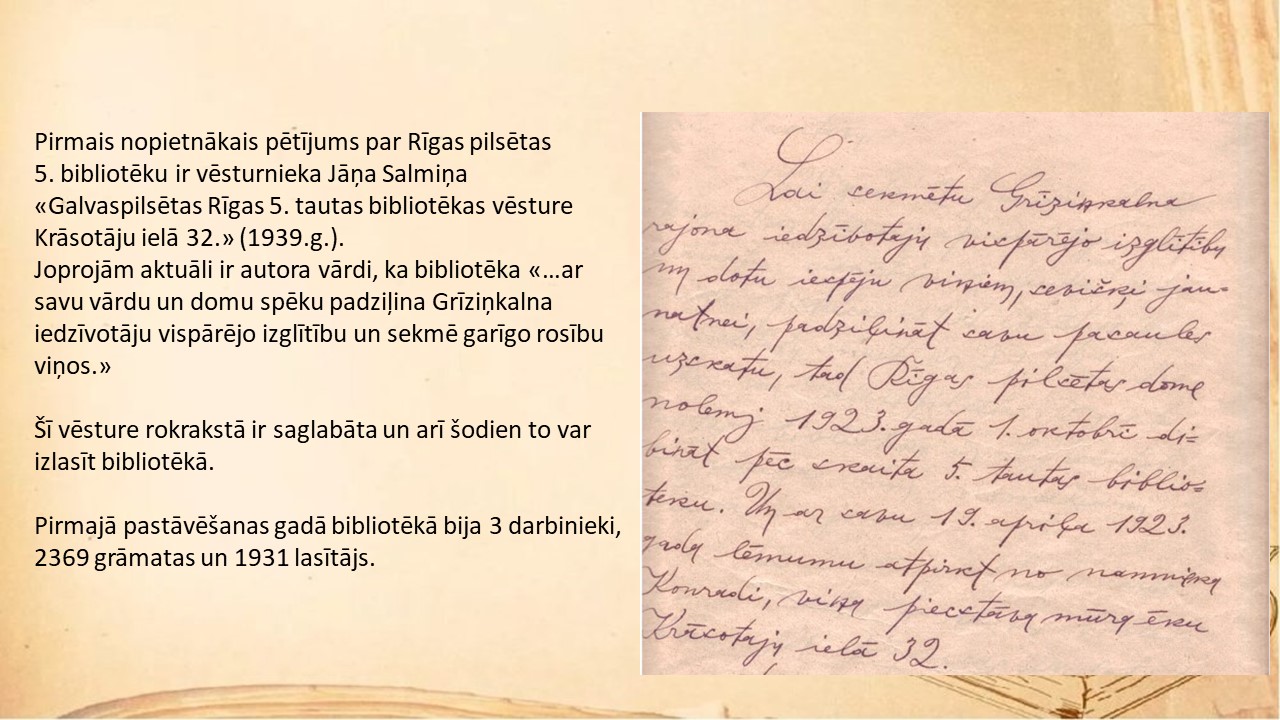 Pirmais nopietnākais pētījums par Rīgas pilsētas
5. bibliotēku ir vēsturnieka Jāņa Salmiņa
«Galvaspilsētas Rīgas 5. tautas bibliotēkas vēsture
Krāsotāju ielā 32.» (1939.g.).
Joprojām aktuāli ir autora vārdi, ka bibliotēka «…ar
savu vārdu un domu spēku padziļina Grīziņkalna
iedzīvotāju vispārējo izglītību un sekmē garīgo rosību
viņos.»
Šī vēsture rokrakstā ir saglabāta un arī šodien to var
izlasīt bibliotēkā.
Pirmajā pastāvēšanas gadā bibliotēkā bija 3 darbinieki,
2369 grāmatas un 1931 lasītājs.
Lai sekmētu Grīziņkalna
rajona iedzībotaju vispārējo izglītību
un dotu iespēju viņiem, sevišķi jau-
natnei, padziļināt savu pasaules
uzskatu, tad Rīgas pilsētas dome
nolemj 1923. gadā 1. oktobrī di=
bināt pēc skaita 5. tautas biblio=
teku. Un ar savu 19. apriļa 1923.
gada lēmumu atpirkt no namnieka
Konradi, viņa piecstāvu mūra ēku
Krāsotaju ielā 32.